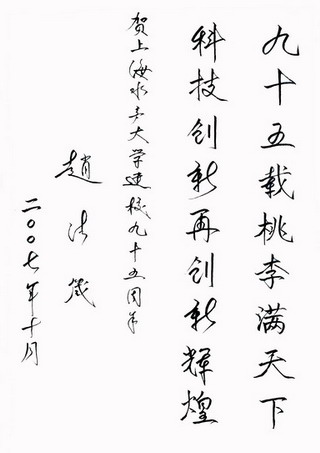 九十五载桃李满天下
科技创新再创新辉煌
贺上海水产大学建校九十五周年
赵法箴
二〇〇七年十月